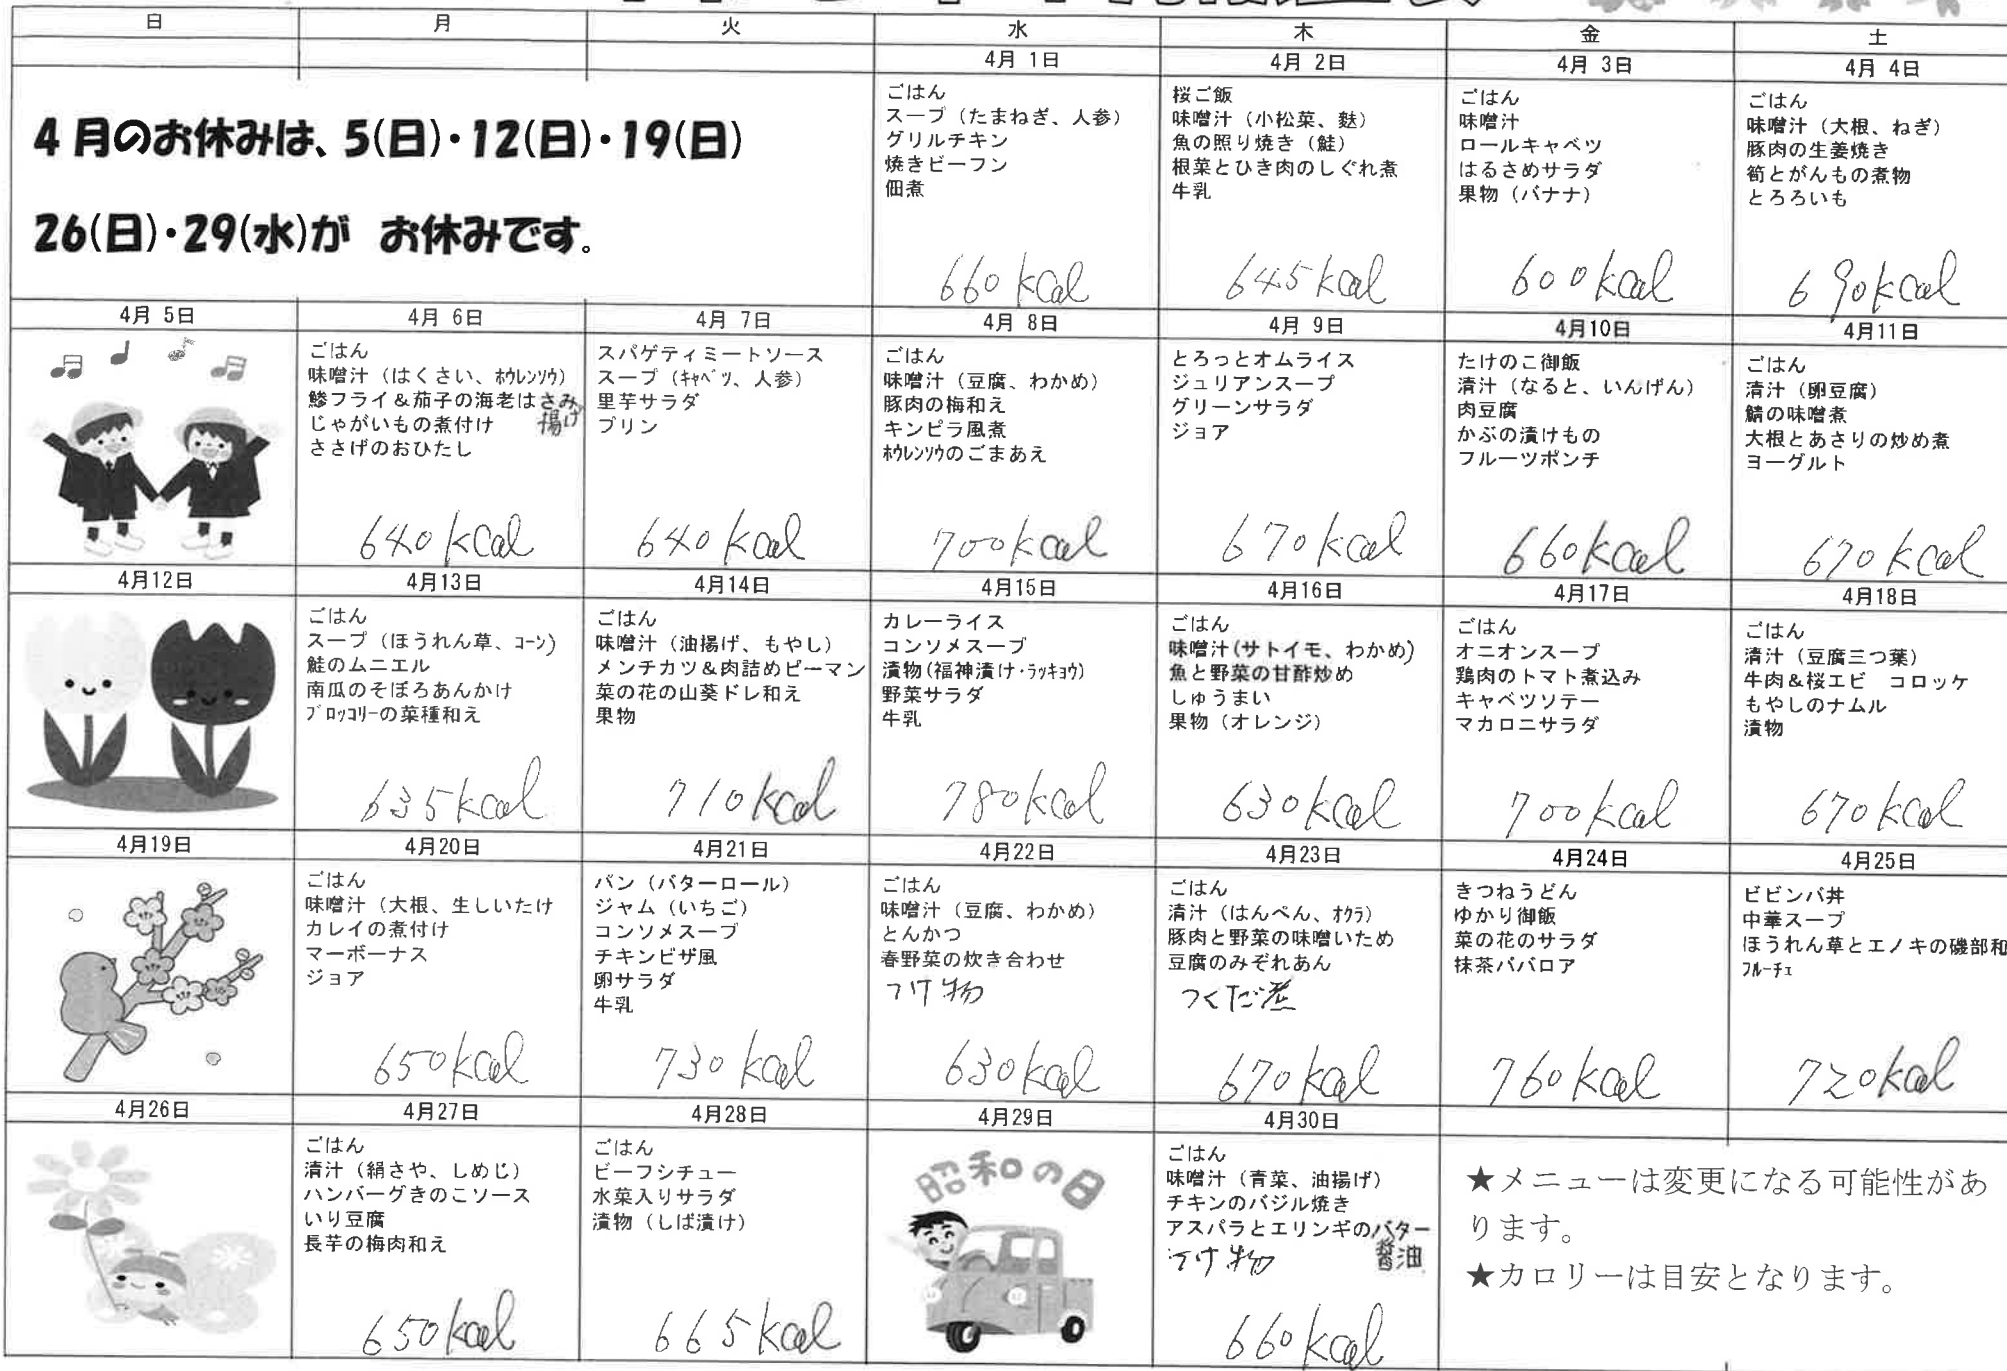 日 月 火 水 木 金 土
4月 1日 4月 2日 4月 3日 4月 4日
4月のお休みは、5(日)・12(日)・19(日)
26(日)・29(水)が お休みです。
ごはん
スープ（たまねぎ、人参）
グリルチキン
焼きビーフン
佃煮
660kcal
桜ご飯
味噌汁（小松菜、麩）
魚の照り焼き（鮭）
根菜とひき肉のしぐれ煮
牛乳
645kcal
ごはん
味噌汁
ロールキャベツ
はるさめサラダ
果物（バナナ）
600kcal
ごはん
味噌汁（大根、ねぎ）
豚肉の生姜焼き
筍とがんもの煮物
とろろいも
690kcal
4月 5日 4月 6日 4月 7日 4月 8日 4月 9日 4月10日 4月11日
ごはん
味噌汁（はくさい、ﾎｳﾚﾝｿｳ）
鯵フライ＆茄子の海老はさみ
揚げ
じゃがいもの煮付け
ささげのおひたし
640kcal
スパゲティミートソース
スープ（ｷｬﾍﾞﾂ、人参）
里芋サラダ
プリン
640kcal
ごはん
味噌汁（豆腐、わかめ）
豚肉の梅和え
キンピラ風煮
ﾎｳﾚﾝｿｳのごまあえ
700kcal
とろっとオムライス
ジュリアンスープ
グリーンサラダ
ジョア
670kcal
たけのこ御飯
清汁（なると、いんげん）
肉豆腐
かぶの漬けもの
フルーツポンチ
660kcal
ごはん
清汁（卵豆腐）
鯖の味噌煮
大根とあさりの炒め煮
ヨーグルト
670kcal
4月12日 4月13日 4月14日 4月15日 4月16日 4月17日 4月18日
ごはん
スープ（ほうれん草、ｺｰﾝ）
鮭のムニエル
南瓜のそぼろあんかけ
ﾌﾞﾛｯｺﾘｰの菜種和え
635kcal
ごはん
味噌汁（油揚げ、もやし）
メンチカツ＆肉詰めピーマン
菜の花の山葵ドレ和え
果物
710kcal
カレーライス
コンソメスープ
漬物(福神漬け・ﾗｯｷｮｳ)
野菜サラダ
牛乳
780kcal
ごはん
味噌汁(サトイモ、わかめ)
魚と野菜の甘酢炒め
しゅうまい
果物（オレンジ）
630kcal
ごはん
オニオンスープ
鶏肉のトマト煮込み
キャベツソテー
マカロニサラダ
700kcal
ごはん
清汁（豆腐三つ葉）
牛肉＆桜エビ コロッケ
もやしのナムル
漬物
670kcal
4月19日 4月20日 4月21日 4月22日 4月23日 4月24日 4月25日
ごはん
味噌汁（大根、生しいたけ
カレイの煮付け
マーボーナス
ジョア
650kcal
パン（バターロール）
ジャム（いちご）
コンソメスープ
チキンピザ風
卵サラダ
牛乳
730kcal
ごはん
味噌汁（豆腐、わかめ）
とんかつ
春野菜の炊き合わせ
つけ物
630kcal
ごはん
清汁（はんぺん、ｵｸﾗ）
豚肉と野菜の味噌いため
豆腐のみぞれあん
つくだ煮
670kcal
きつねうどん
ゆかり御飯
菜の花のサラダ
抹茶ババロア
760kcal
ビビンバ丼
中華スープ
ほうれん草とエノキの磯部和
ﾌﾙｰﾁｪ
720kcal
4月26日 4月27日 4月28日 4月29日 4月30日
ごはん
清汁（絹さや、しめじ）
ハンバーグきのこソース
いり豆腐
長芋の梅肉和え
650kcal
ごはん
ビーフシチュー
水菜入りサラダ
漬物（しば漬け）
665kcal
昭和の日
ごはん
味噌汁（青菜、油揚げ）
チキンのバジル焼き
アスパラとエリンギのバター
醤油
つけ物
660kcal
★メニューは変更になる可能性があ
ります。
★カロリーは目安となります。